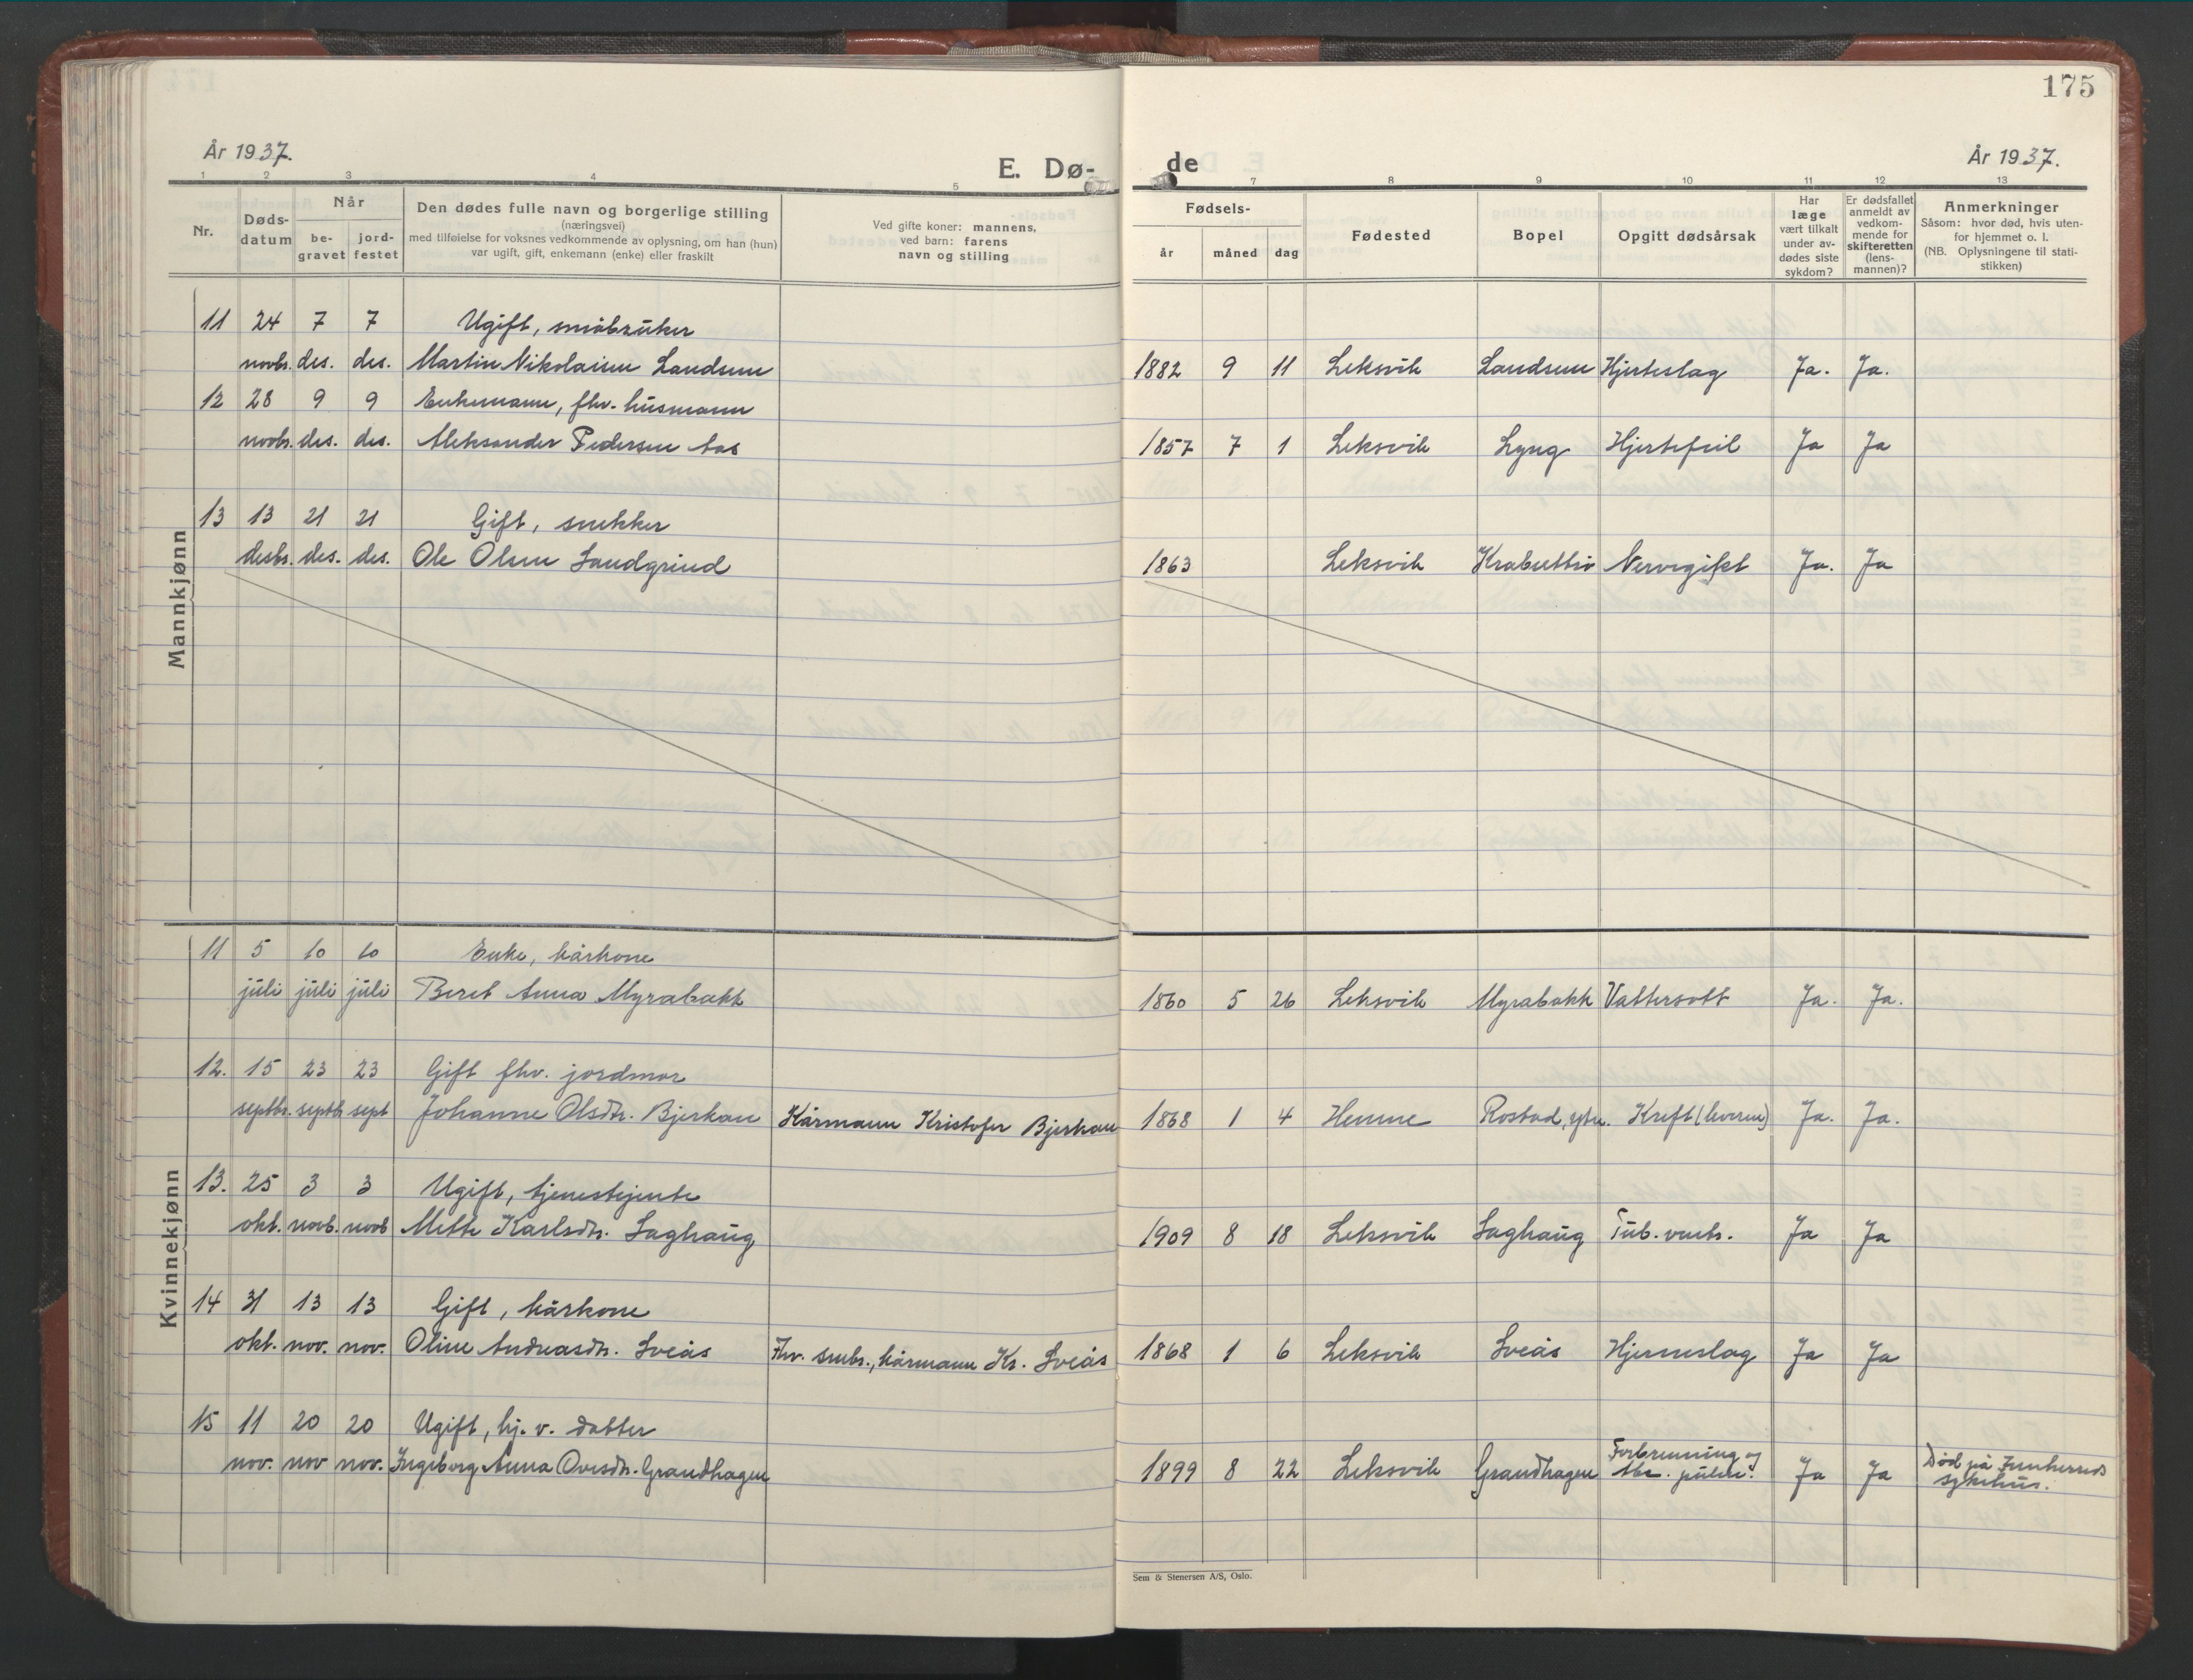 175
År 1937.
E. Dø-de
År 1937.
1 2 3 4 5 7 8 9 10 11 12 13
Nr.
Døds-datum
Når
be-gravet
jord-festet
Den dødes fulle navn og borgerlige stilling
(næringsvei)
med tilføielse for voksnes vedkommende av oplysning, om han (hun)
var ugift, gift, enkemann (enke) eller fraskilt
Ved gifte koner: mannens,
ved barn: farens
navn og stilling
Fødsels-
år måned dag
Fødested
Bopel
Opgitt dødsårsak
Har læge vært tilkalt under av-dødes siste sykdom?
Er dødsfallet anmeldt av vedkom-mende for skifteretten (lens-mannen)?
Anmerkninger
Såsom: hvor død, hvis uten-
for hjemmet o. l.
(NB. Oplysningene til stati-
stikken)
Mannkjønn
11 24 7 7 Ugift, småbruker
novbr. des. des. Martin Nikolaisen Landsem 1882 9 11 Leksvik Landsem Hjerteslag Ja. Ja.
12 28 9 9 Enkemann, fhv. husmann
novbr. des. des. Aleksander Pedersen Aas 1857 7 1 Leksvik Lyng Hjertefeil Ja Ja
13 13 21 21 Gift, snekker
desbr. des. des. Ole Olsen Sandgrind 1863 Leksvik Nervegikt Ja. Ja
Kvinnekjønn
11 5 10 10 Enke, kårkone
juli juli juli Beret Anna Myrabakk 1860 5 26 Leksvik Myrabakk Vattersott Ja. Ja.
12. 15 23 23 Gift fhv. jordmor
septbr. septb sept Johanne Olsdtr. Bjerkan Kårmann Kristofer Bjerkan 1868 1 4 Hemne Rostad, ytre. Kreft (leveren) Ja. Ja.
13. 25 3 3 Ugift, tjenestejente
okt. novb. novb Mette Karlsdtr. Saghaug 1909 8 18 Leksvik Saghaug Tub. Ja Ja
14 31 13 13 Gift, kårkone
okt. nov. nov. Oline Andreasdtr. Sveås Fhv. smbr., kårmann Kr. Sveås 1868 1 6 Leksvik Sveås Hjerneslag Ja Ja
15 11 20 20 Ugift, hj. v. datter
nov. nov nov. Ingeborg Anna Ovesdtr. Grandhagen 1899 8 22 Leksvik Grandhagen Forbrenning og Tbc. pulm. Ja Ja Død på Innherreds sykehus.
Sem & Stenersen A/S, Oslo.